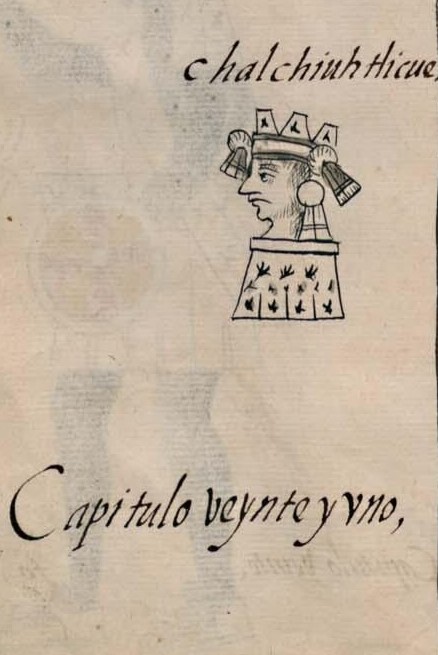 chalchiuhtlicue,
Capitulo veynte y vno,